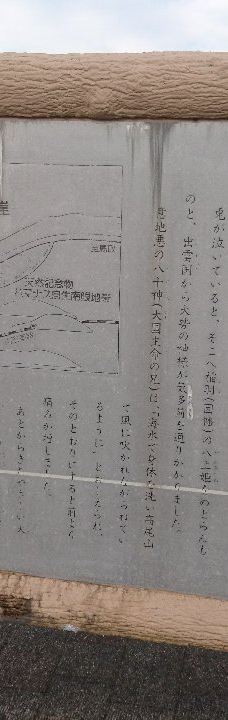 兎が泣いていると、そこへ稲羽(因幡)の八上姫をめとらんも
のと、出雲国から大勢の神様が気多前を通りかかりました。
意地悪の八十神(大国主命の兄)は、「海水で身体を洗い高尾山
で風に吹かれながらねてい
るように」とおしえられ、
そのとおりにすると前より
痛みが増しました。
あとからきたやさしい大
天然記念物
ハマナス自生南限地帯